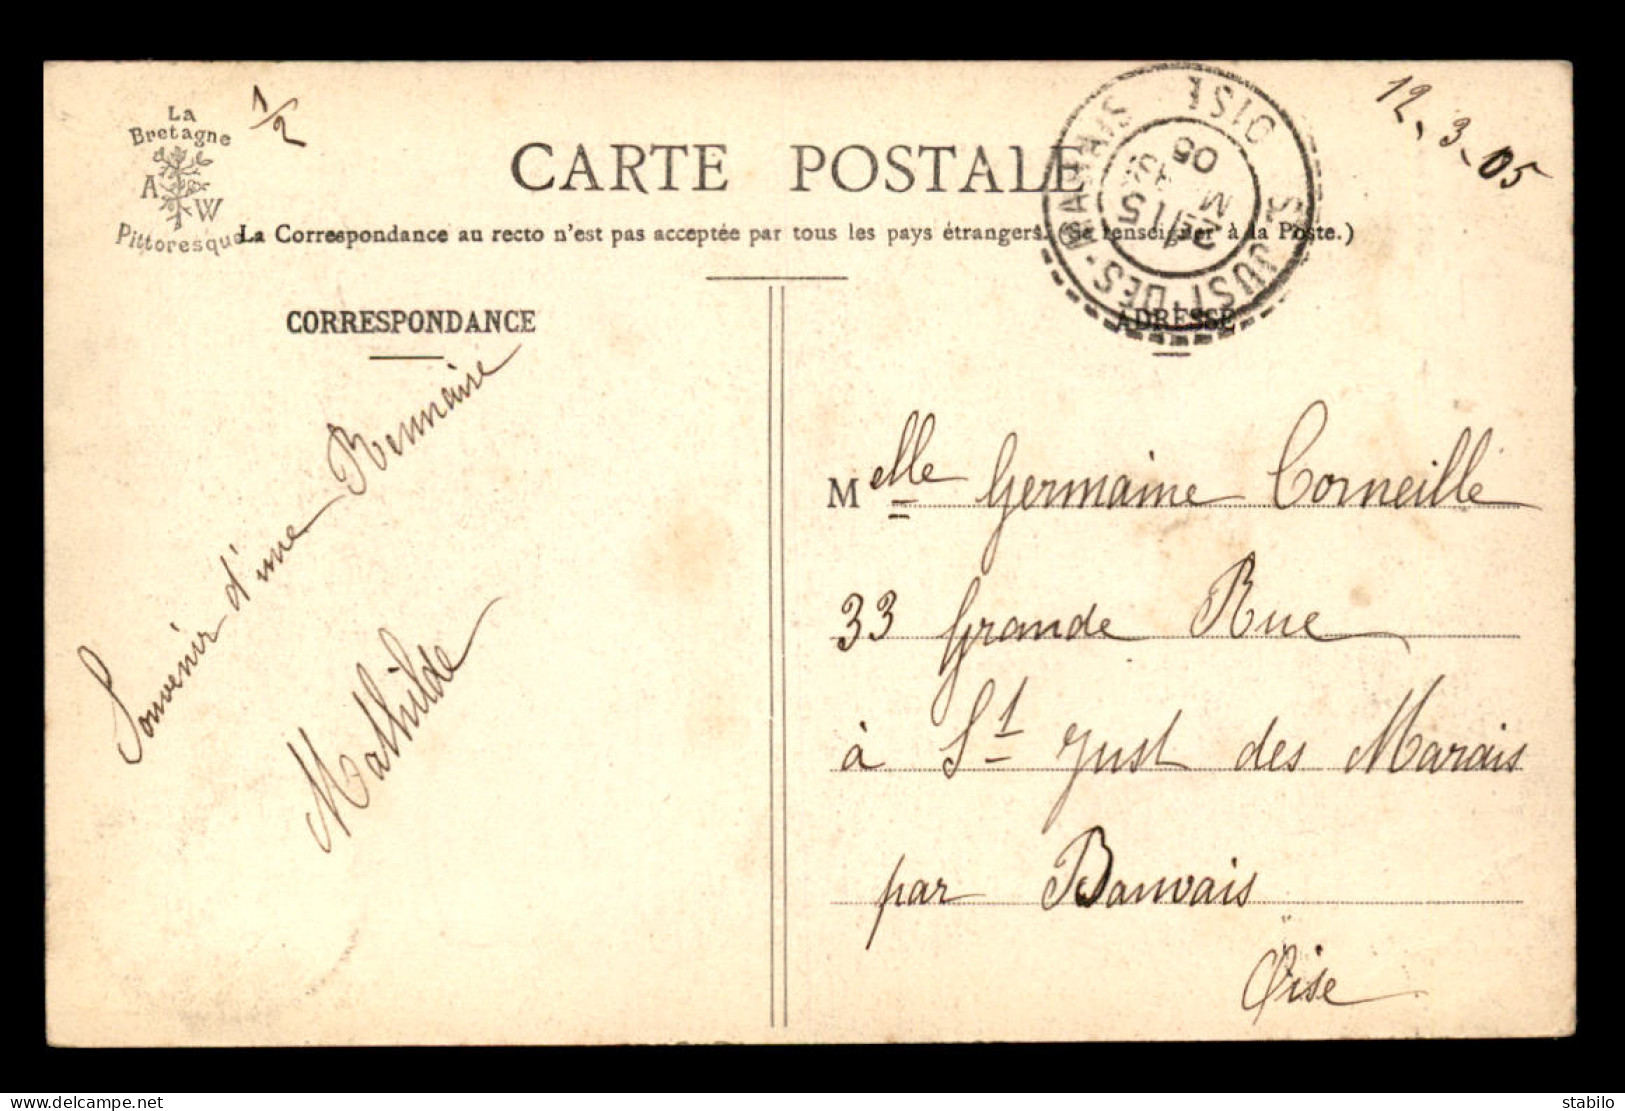 La
Bretagne
A W
Pittoresque
1/2
12.3.05
CARTE POSTALE
La Correspondance au recto n'est pas acceptée par tous les pays étrangers. (Se renseigner à la Poste.)
ST JUST-DES-MARAIS OISE
05
CORRESPONDANCE
ADRESSE
Souvenir d'une Rennaise
Mathilde
Melle Germaine Corneille
33 Grande Rue
à St Just des Marais
par Bauvais
Oise
delcampe.net
stabilo